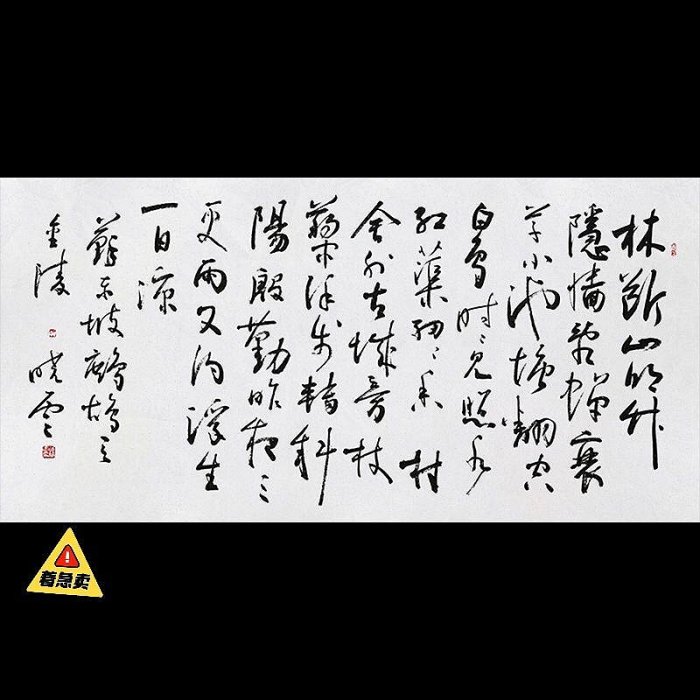 林断山明竹
隱墙乱蟬衰
草小池塘翻空
白鸟时〻见照水
红蕖细〻香村
舍外古城旁杖
藜徐步轉斜
陽殷勤昨夜三
更雨又得浮生
一日凉
蘇东坡鹧鸪天
金陵 晓云
着急卖